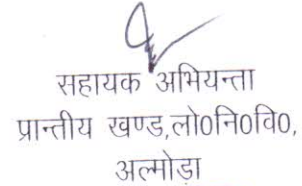 सहायक अभियन्ता
प्रान्तीय खण्ड,लो0नि0वि0,
अल्मोड़ा